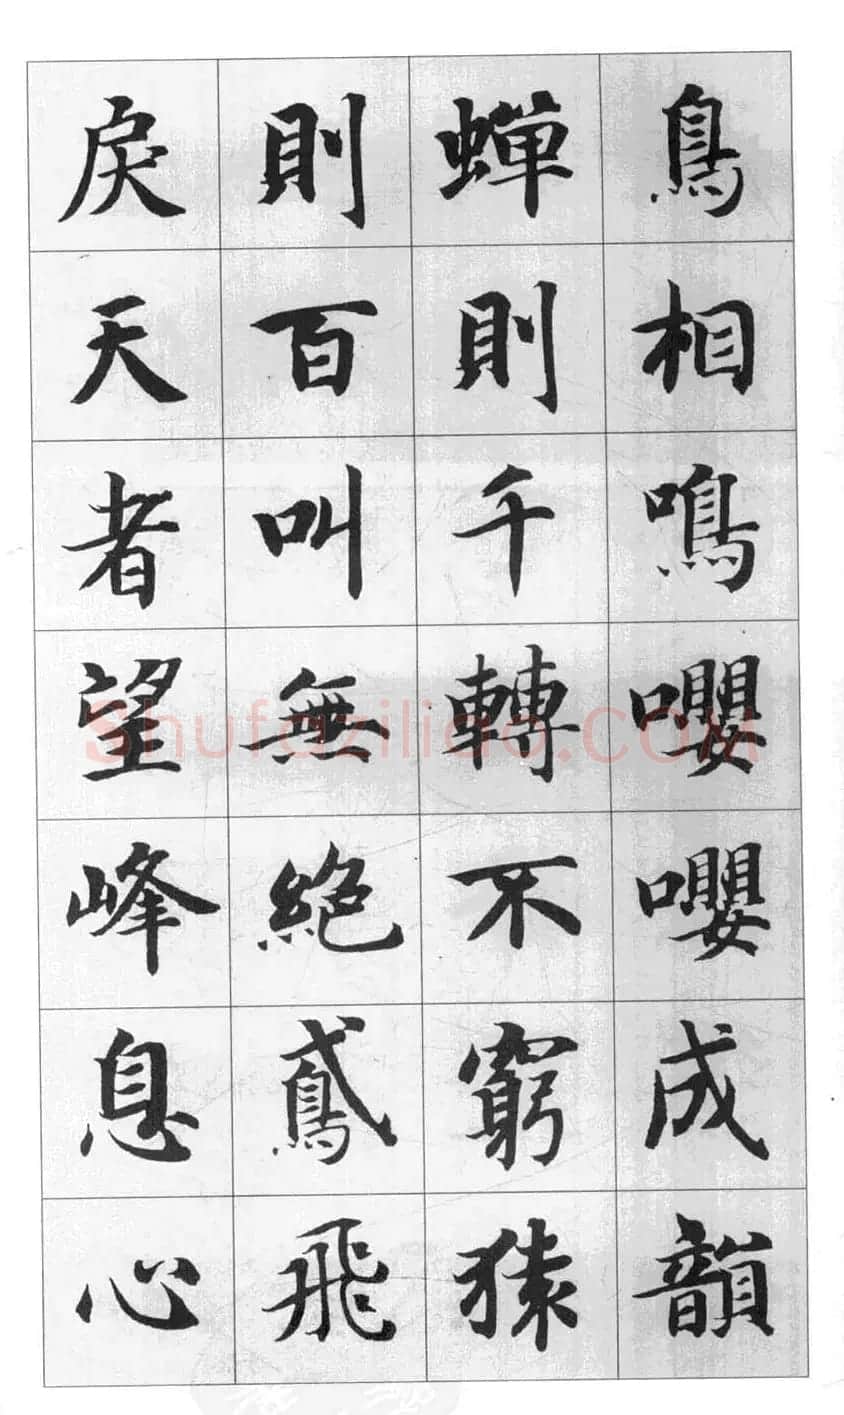 鳥相鳴嚶嚶成韻
蟬則千轉不窮猿
則百叫無絕鳶飛
戾天者望峰息心
Shufaziliao.COM